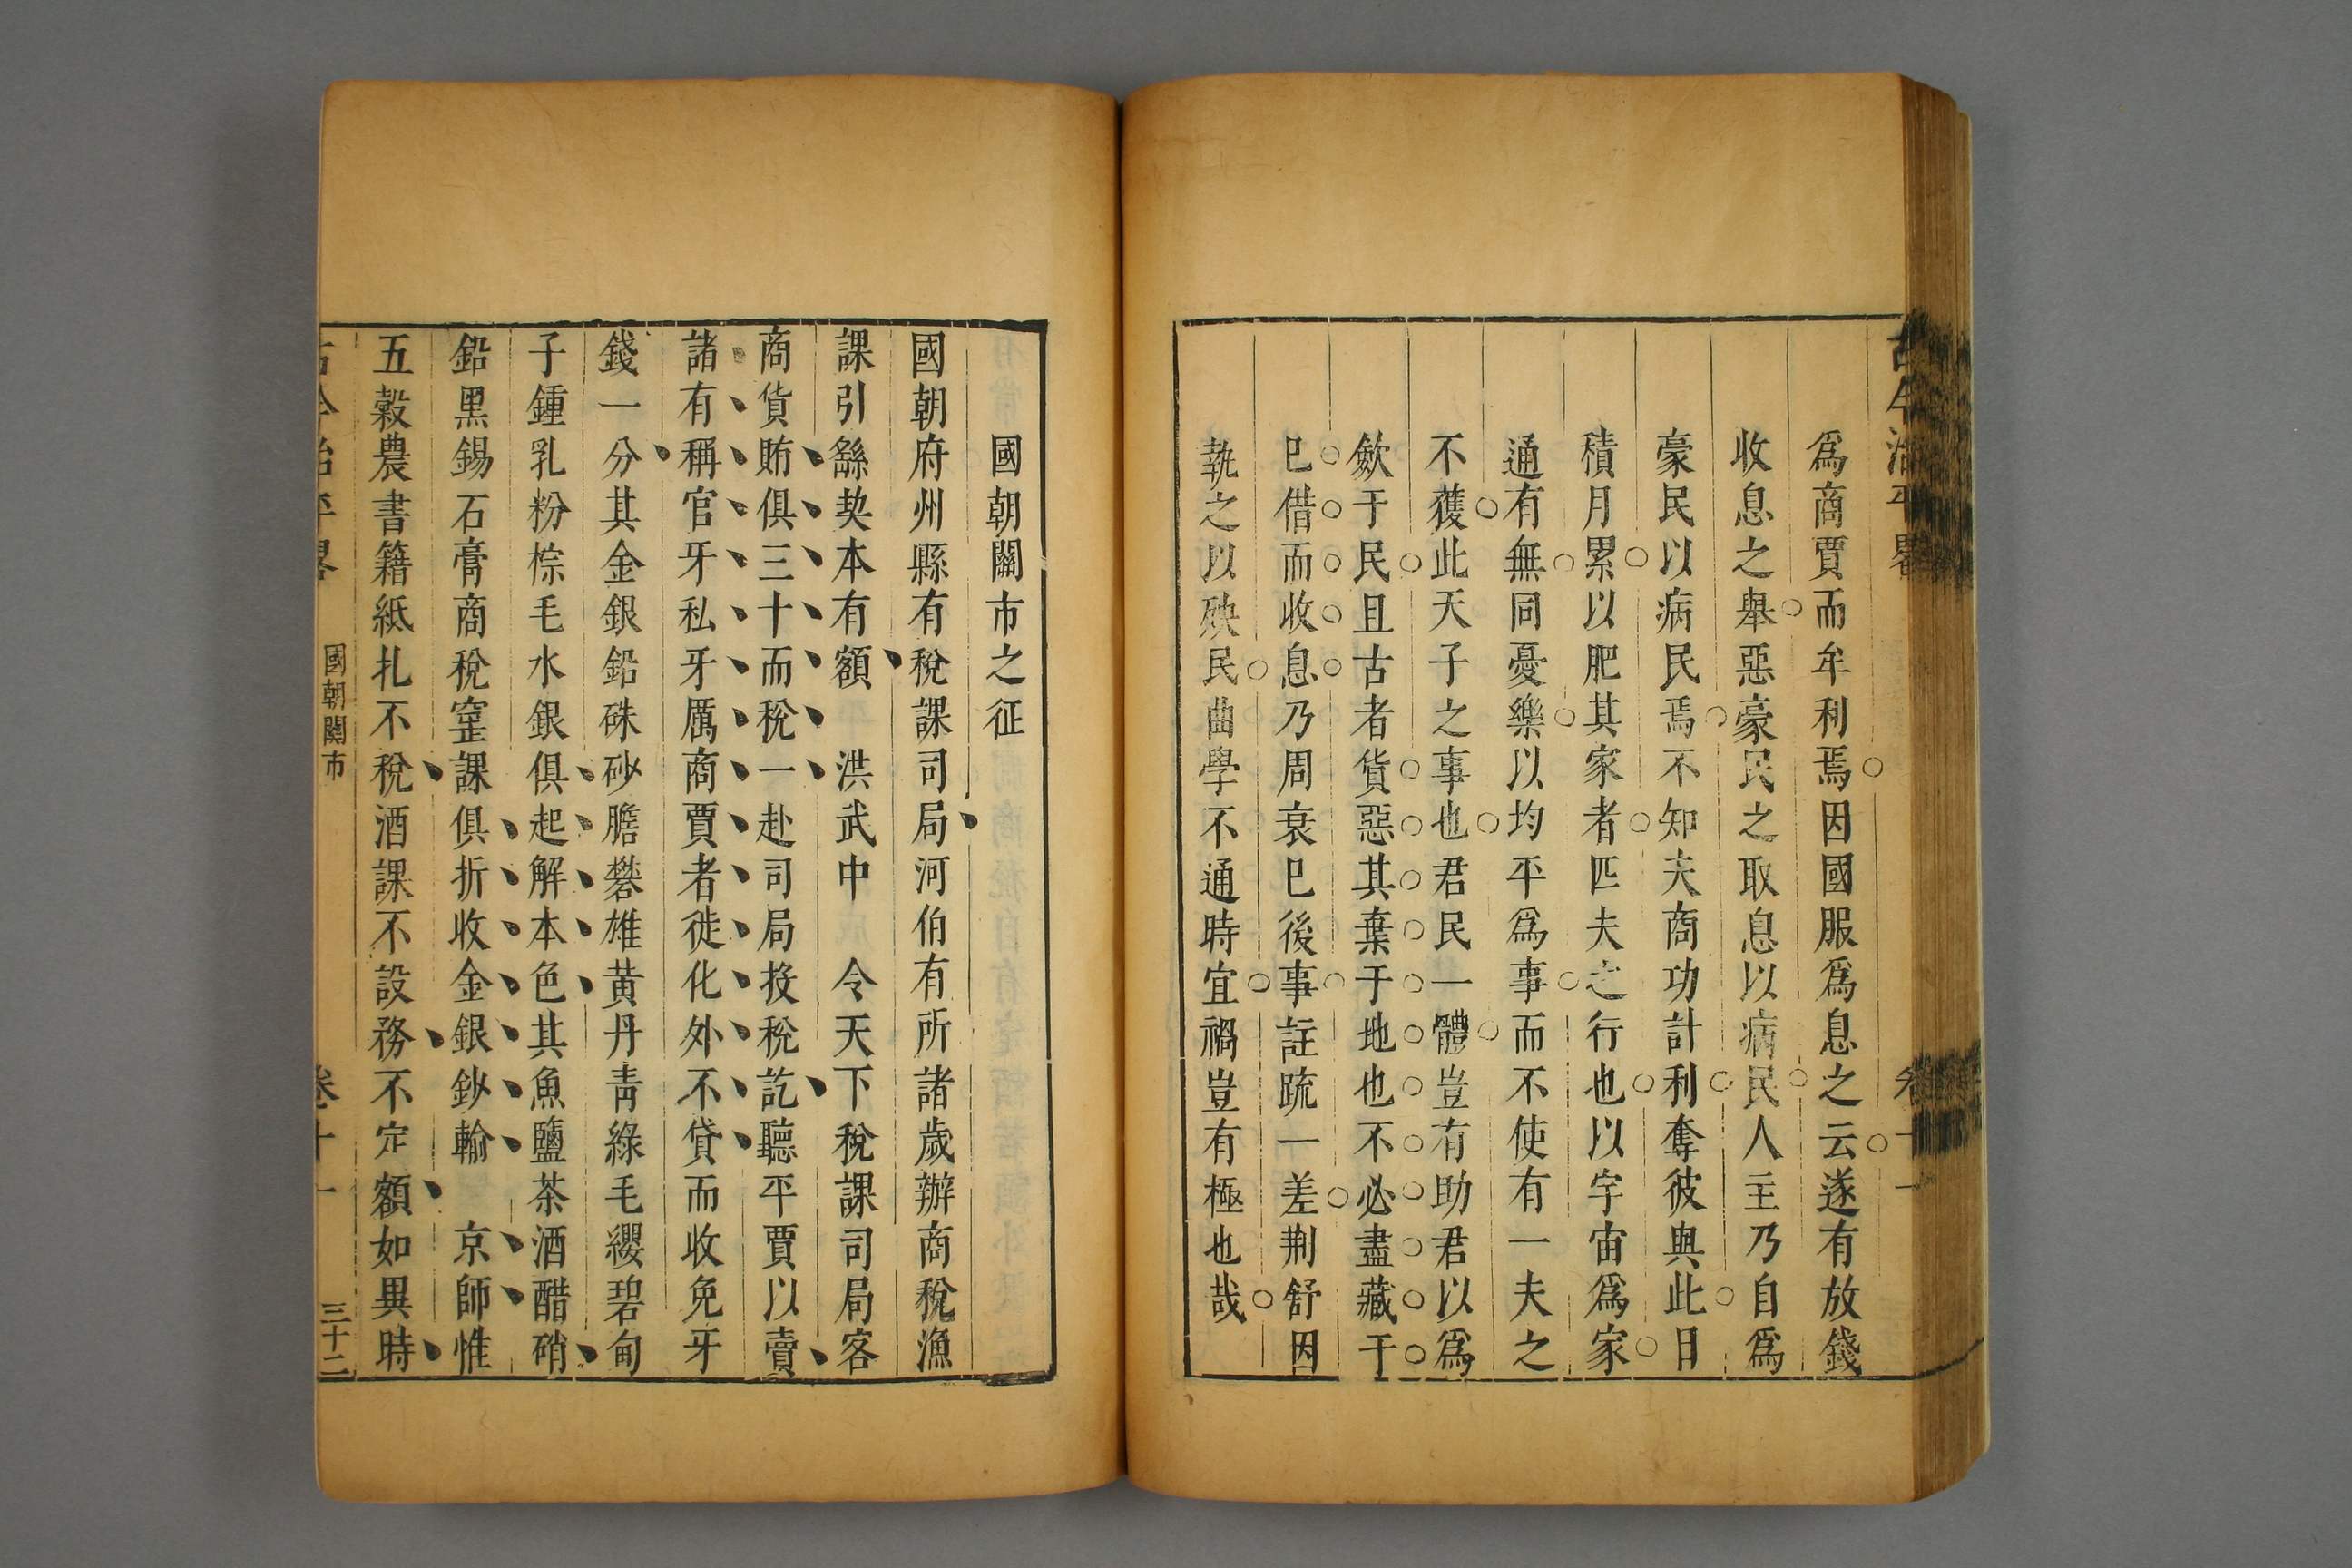 爲商賈而牟利焉因國服爲息之云遂有放錢
收息之舉惡豪民之取息以病民人主乃自爲
豪民以病民焉不知夫商功計利奪彼與此日
積月累以肥其家者匹夫之行也以宇宙爲家
通有無同憂樂以均平爲事而不使有一夫之
不獲此天子之事也君民一體豈有助君以爲
歛于民且古者貨惡其棄于地也不必盡藏于
巳借而收息乃周衰巳後事註疏一差荆舒因
執之以殃民曲學不通時宜禍豈有極也哉
國朝關市之征
國朝府州縣有稅課司局河伯有所諸歲辦商稅漁
課引繇契本有額 洪武中 令天下稅課司局客
商貨賄俱三十而稅一赴司局投稅訖聽平賈以賣
諸有稱官牙私牙厲商賈者徙化外不貸而收免牙
錢一分其金銀鉛硃砂膽礬雄黃丹青綠毛纓碧甸
子鍾乳粉棕毛水銀俱起解本色其魚鹽茶酒醋硝
鉛黑錫石膏商稅窰課俱折收金銀鈔輸 京師惟
五穀農書籍紙扎不稅酒課不設務不定額如異時
古今治平畧 國朝關市 卷十一 三十二